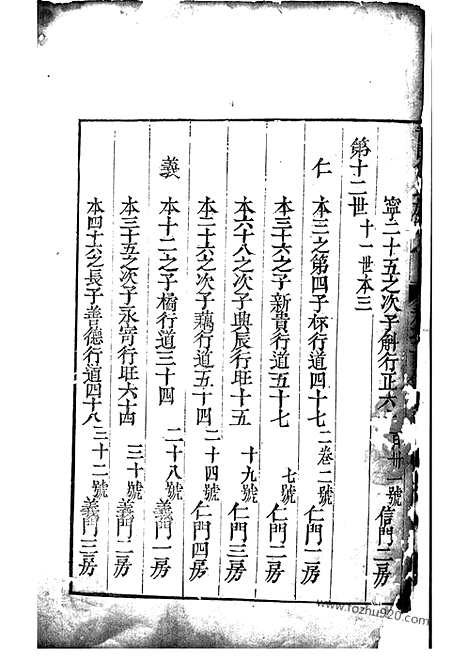 寧二十五之次子斛行正六 百卅一號 信門二房
第十二世 十一世本三
仁 本三之第四子标行道四十七 二卷二號 仁門一房
本三十六之子新貴行道五十七 七號 仁門二房
本六十八之次子典辰行旺十五 十九號 仁門三房
本二十六之次子藕行道五十四 二十四號 仁門四房
義 本十二之子橋行道三十四 二十八號 義門一房
本三十五之次子永寄行旺六十四 三十號 義門二房
本四十六之長子善德行道四十八 三十二號 義門三房
www.fozhu920.com